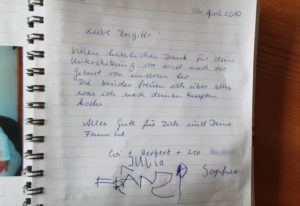 April 2010
Liebe Brigitte
Vielen herzlichen Dank für deine
Unterstützung vor und nach der
Geburt von unserem Leo.
Die Kinder freuen sich über alles
was ich nach deinen Rezepten
koche.
Alles Gute für Dich und Deine
Familie
+ Herbert + Leo
JULIA
Sophie